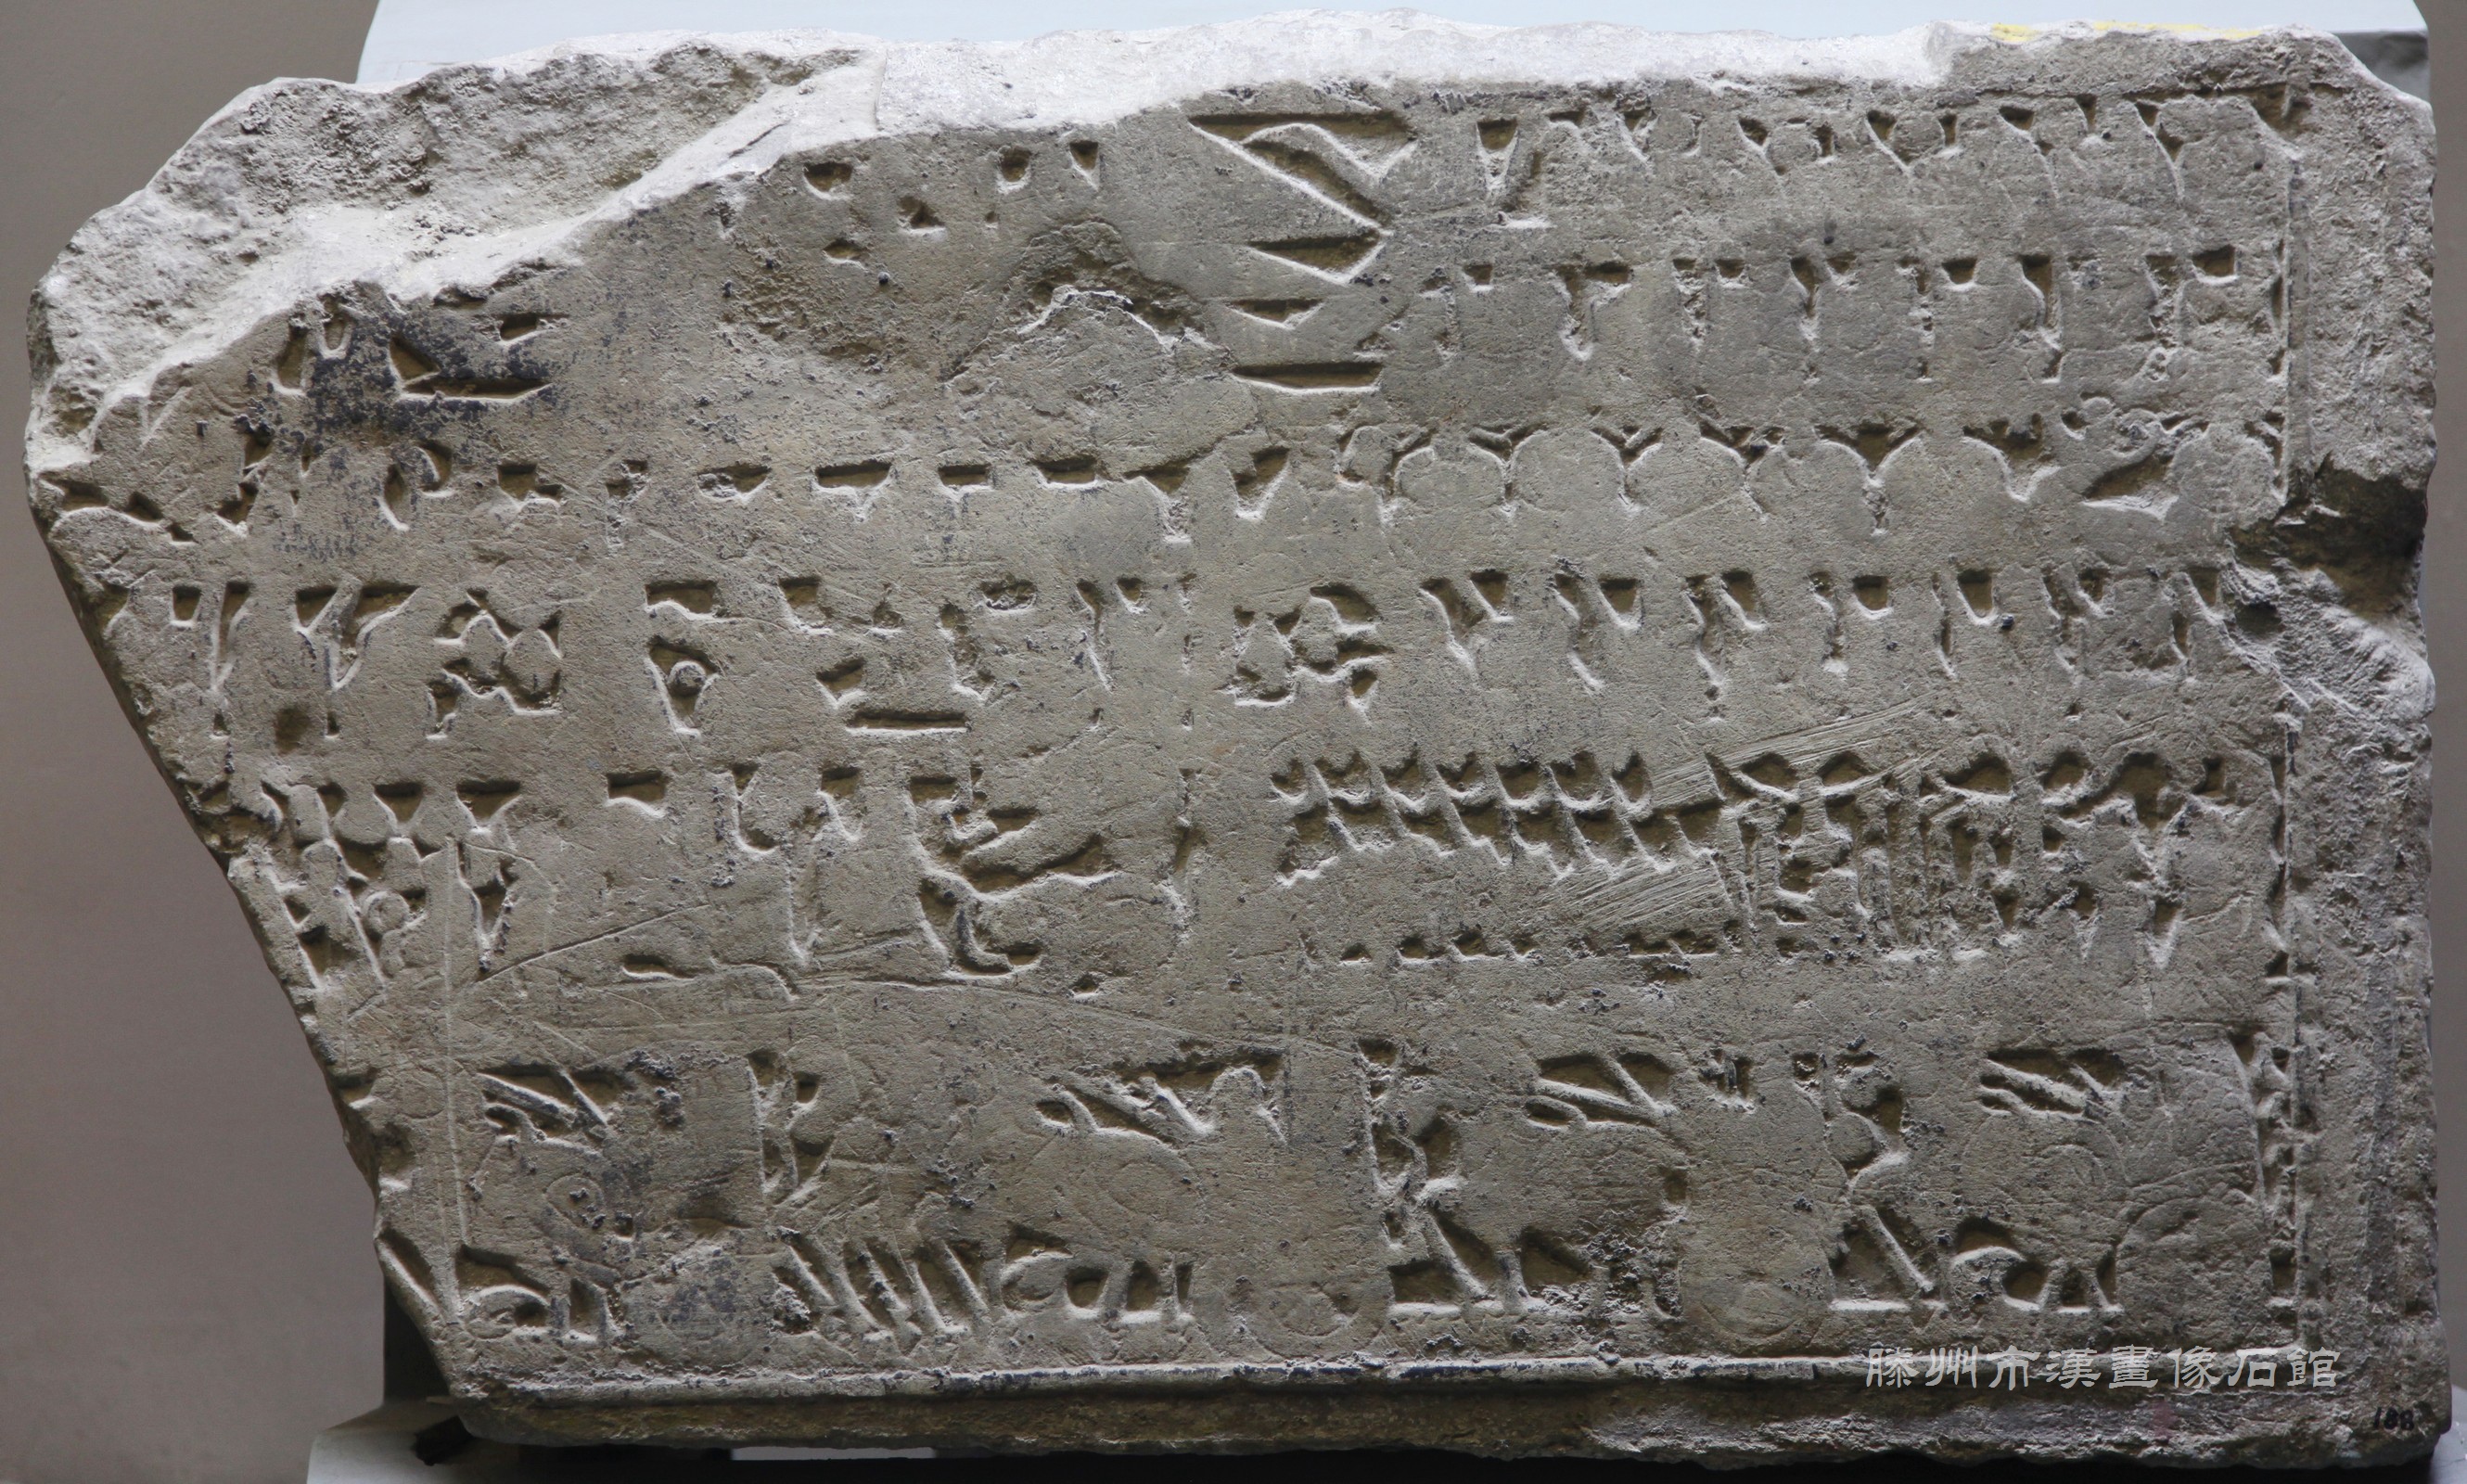 滕州市漢畫像石館
188